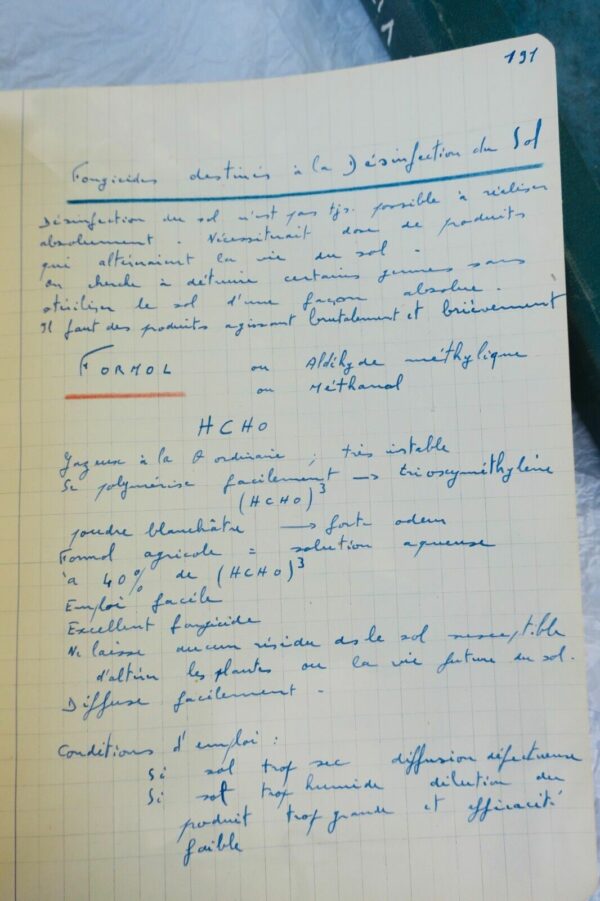 191
Fongicides destinés à la Désinfection du Sol
Désinfection du sol n'est pas tjs. possible à réaliser
absolument. Nécessiterait dose de produits
qui altéreraient la vie du sol.
on cherche à détruire certains germes sans
stériliser le sol d'une façon absolue.
Il faut des produits agissant brutalement et brièvement
FORMOL ou Aldéhyde méthylique
ou Méthanal
HCHO
Gazeux à la θ ordinaire ; très instable
Se polymérise facilement → trioxyméthylène
(HCHO)³
poudre blanchâtre → forte odeur
Formol agricole = solution aqueuse
à 40% de (HCHO)³
Emploi facile
Excellent fongicide
Ne laisse aucun résidu ds le sol susceptible
d'altérer les plantes ou la vie future du sol.
Diffuse facilement.
Conditions d'emploi :
Si sol trop sec diffusion défectueuse
Si sol trop humide dilution du
produit trop grande et efficacité
faible